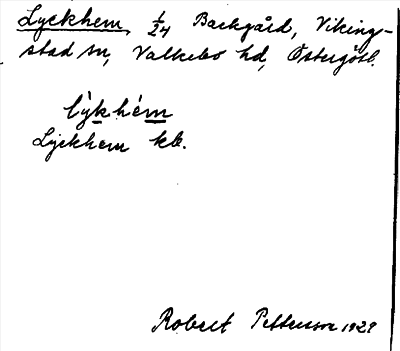 Lyckhem, 1/24 Backgård, Vikings-
stad sn, Valkebo hd, Östergötl.
lỳkhém
Lyckhem kb.
Robert Pettersson 1929